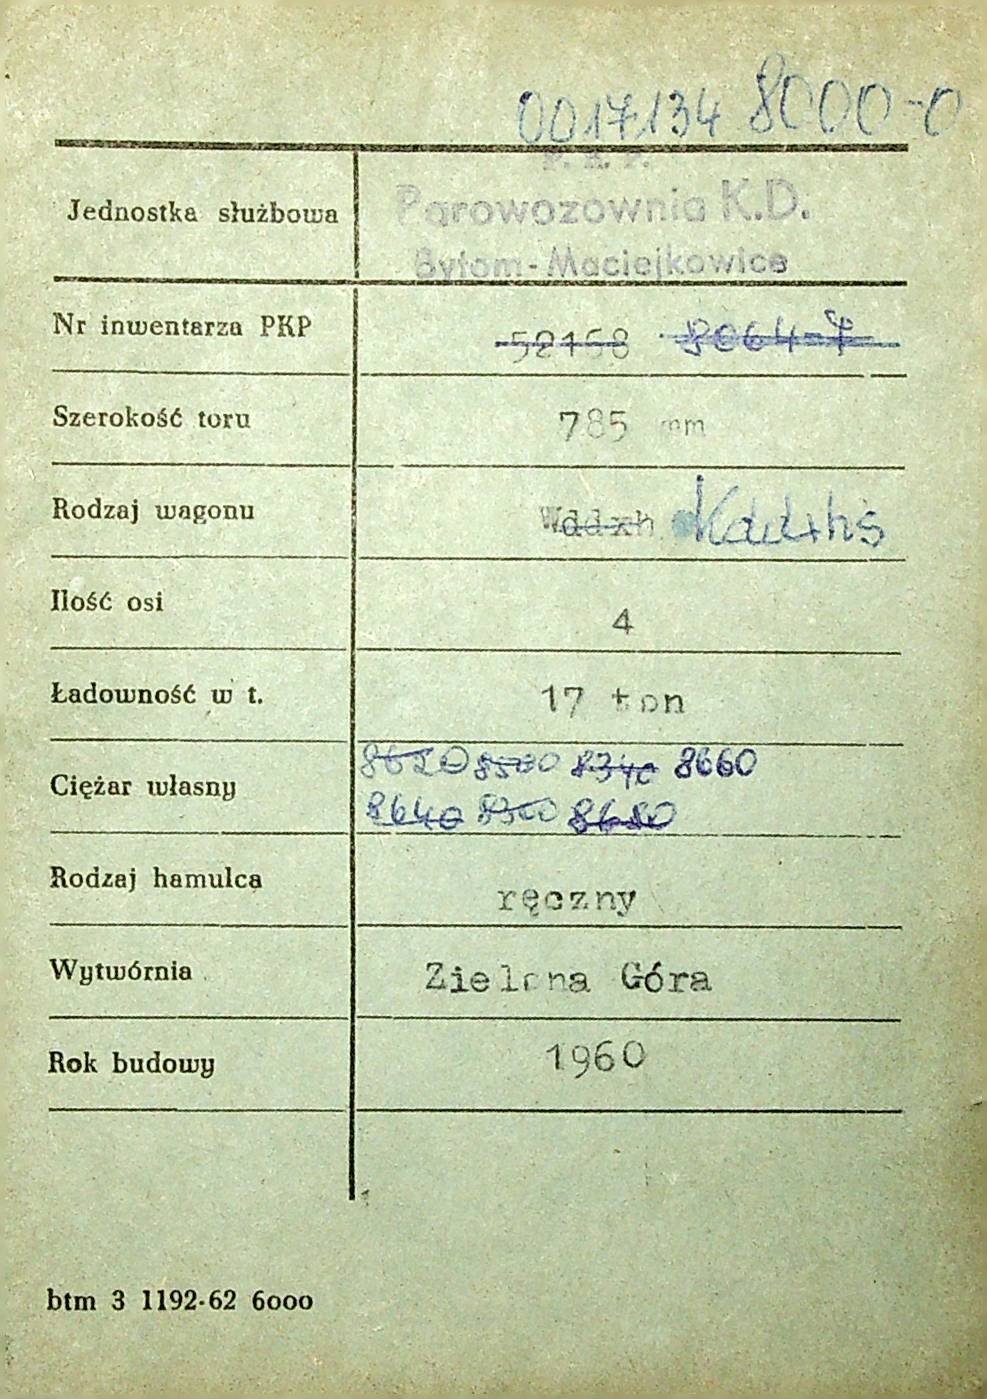 0017134 8000-0
P. K. P.
Jednostka służbowa Parowozownia K.D.
Bytom-Maciejkowice
Nr inwentarza PKP 52168 8064-7
Szerokość toru 785 mm
Rodzaj wagonu Wddxh Kddxhs
Ilość osi 4
Ładowność w t. 17 ton
Ciężar własny 8340 8660
8640 8680
Rodzaj hamulca ręczny
Wytwórnia Zielona Góra
Rok budowy 1960
btm 3 1192-62 6000